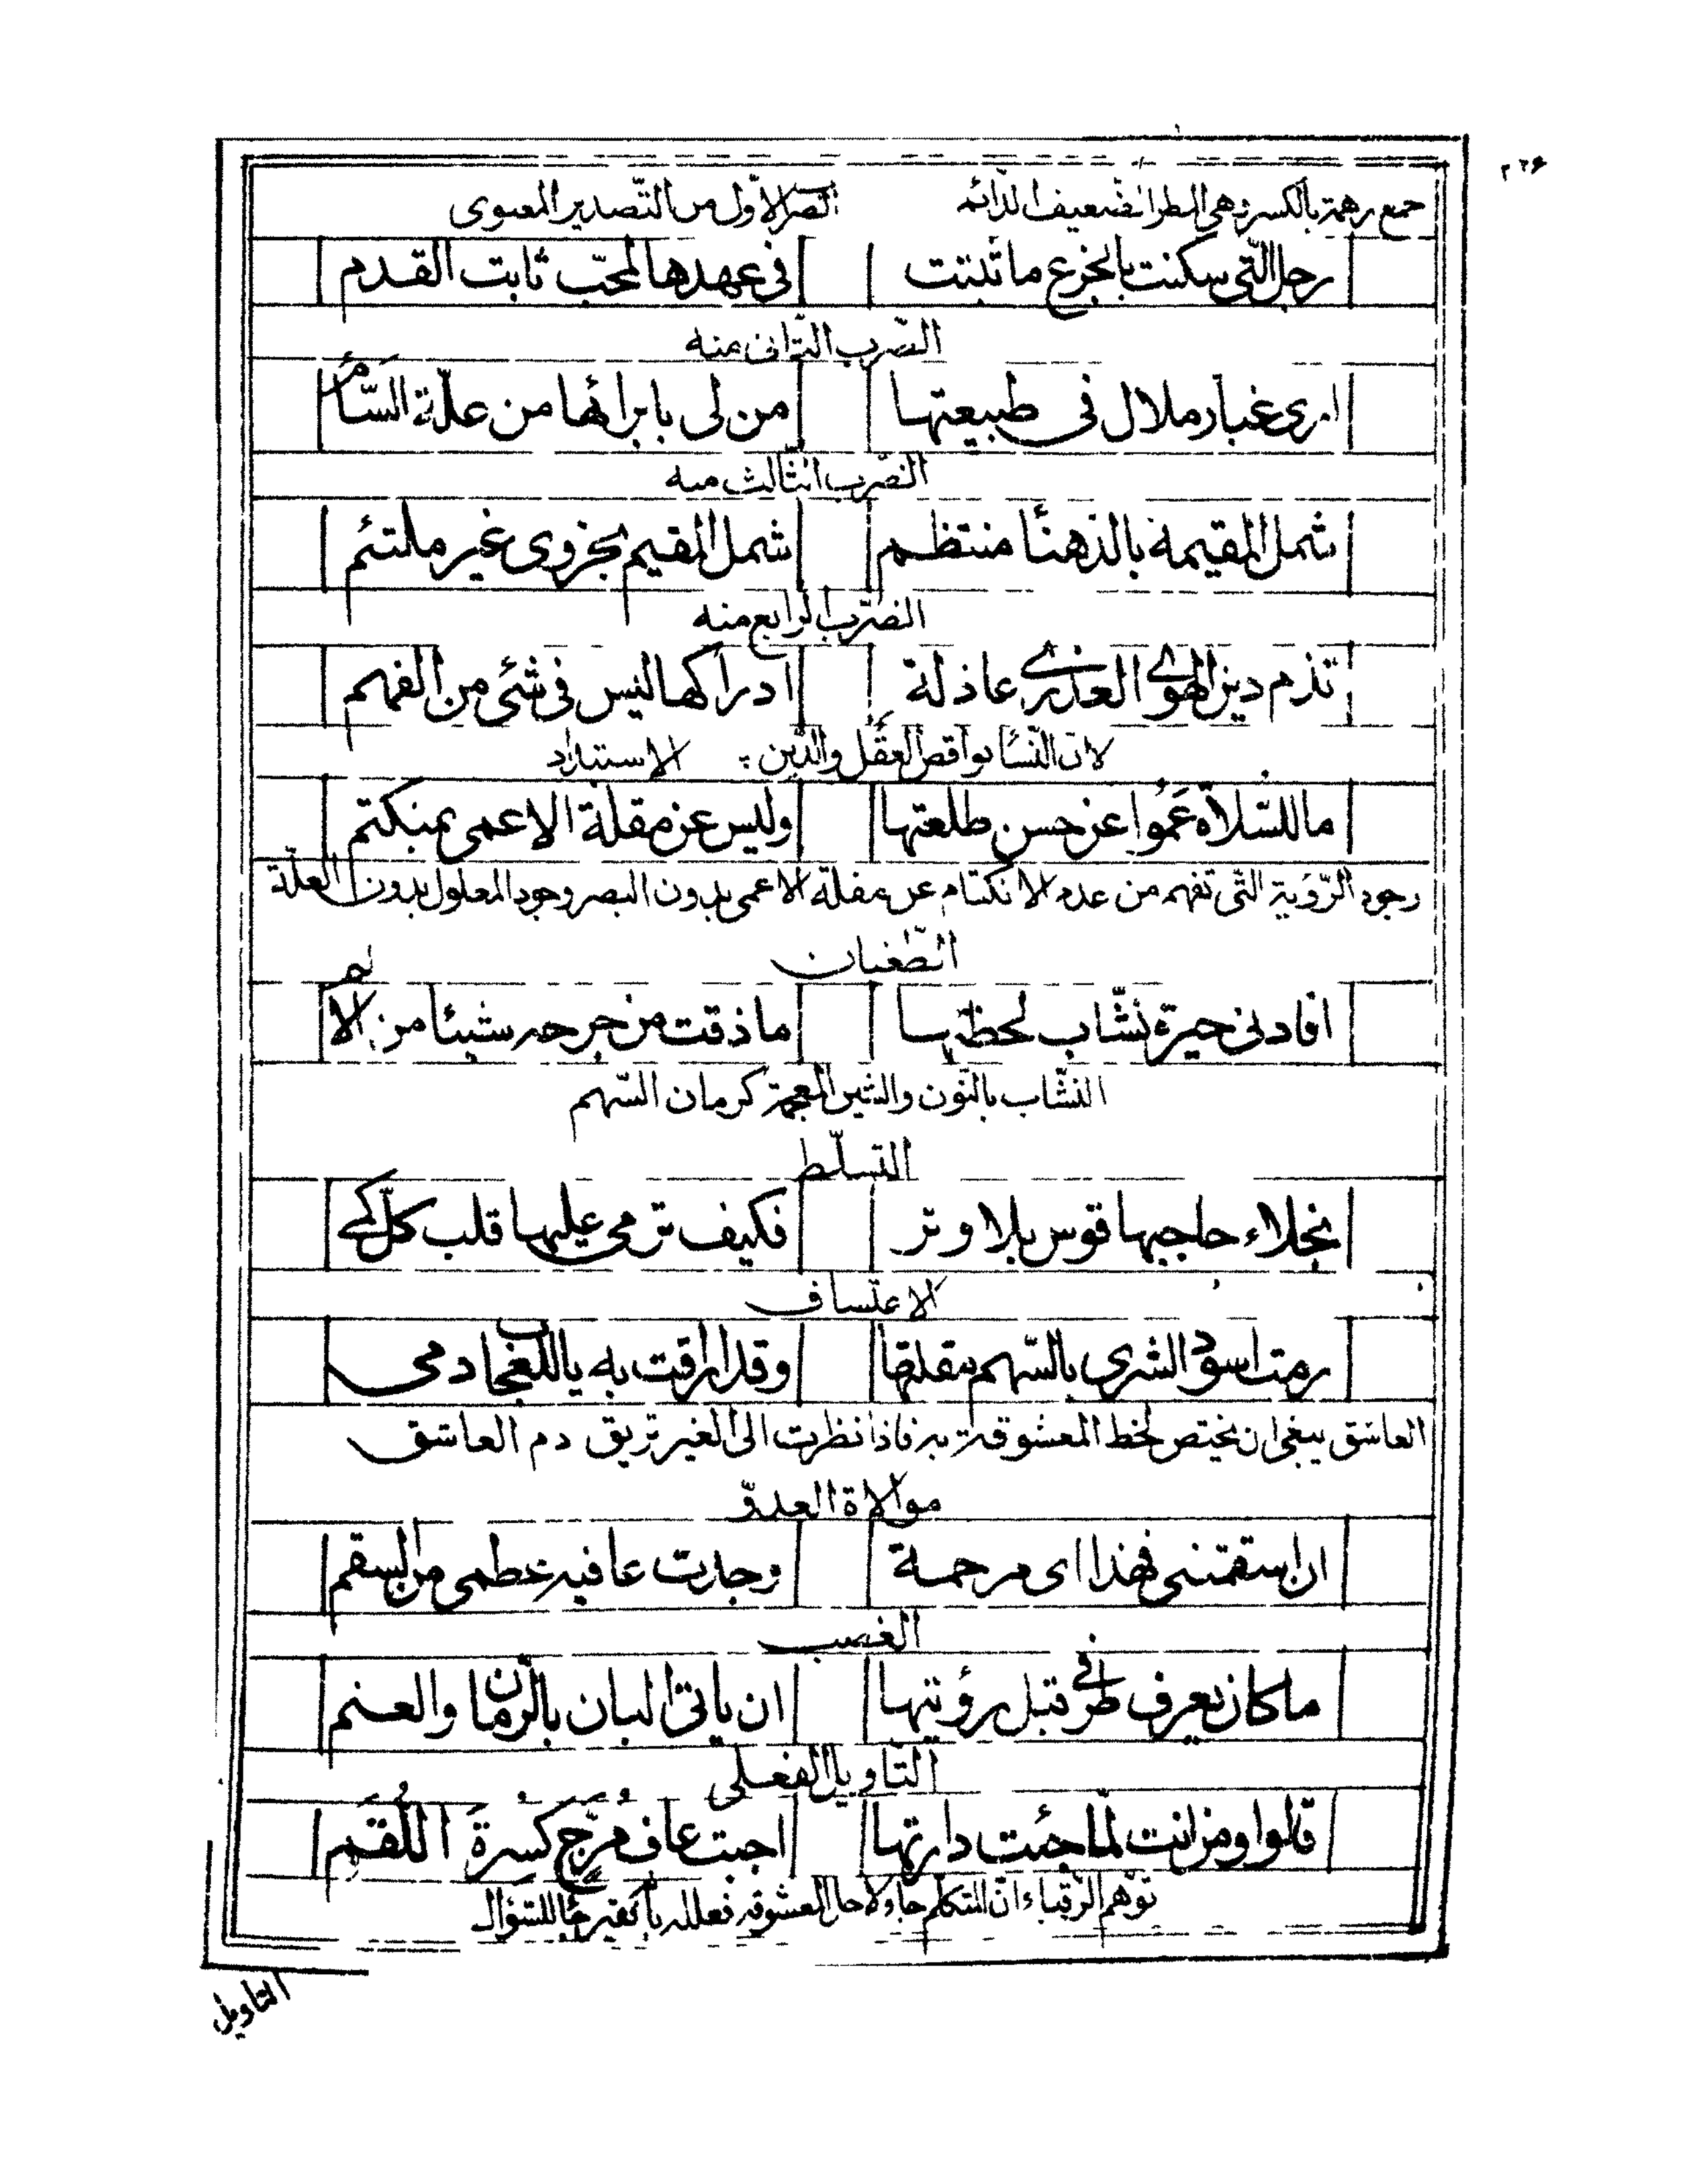 ٢٢۶
جمع رهمة بالكسر وهي المطر الضعيف الدائم الضرب الاوّل من التّصدير المعنوى
رجل الّتى سكنت بالجزع ما ثبتت في عهدها لمحبّ ثابت القدم
الضّرب الثّانى منه
ارى غبار ملال فى طبيعتها من لى بابرائها من علّة السّأم
الضّرب الثّالث منه
شمل المقيمة بالدهنأ منتظم شمل المقيم بحزوى غير ملتئم
الضّرب الرابع منه
تذم دين الهوى العذرى عاذلة ادراكها ليس فى شئ من الفهم
لانّ النّسأ نواقص العقل والدّين الاستبداد
ما للسّلاة عَمُوا عن حسن طلعتها وليس عن مقلة الاعمى بمنكتم
وجود الرّوية الّتى تفهم من عدم الانكتام عن مقلة الاعمى بدون البصر وجود المعلول بدون العلّة
الطّغيان
افادنى حيرة نشّاب لحظتها ما ذقت من جرحه شيئا من الالم
النشّاب بالنّون والشين المعجمة كرمان السّهم
التسلّط
نجلاء حاجبها قوس بلا وتر فكيف ترمى عليها قلب كلّ كمى
الاعتساف
رمت اسود الشرى بالسّهم مقلتها وقد اراقت به يا للعجاب دمى
العاشق ينبغى ان يختص لحظ المعشوقة به فاذا نظرت الى الغير تريق دم العاشق
موالاة العدوّ
ان اسقمتنى فهذا اى مرحمة وجدت عافية عظمى من السقم
الغصب
ما كان يعرف طرفى قبل رؤيتها ان ياتى البان بالرّمان والعنم
التّاويل الفعلى
قالوا ومن انت لمّا جئت دارتها اجبت عاف مُرَجٍّ كسرة اللُقَم
توّهم الرّقباء انّ المتكلم جاء لاجل المعشوقة فعلله بأنّه فقير جأ للسّؤال
التاويل